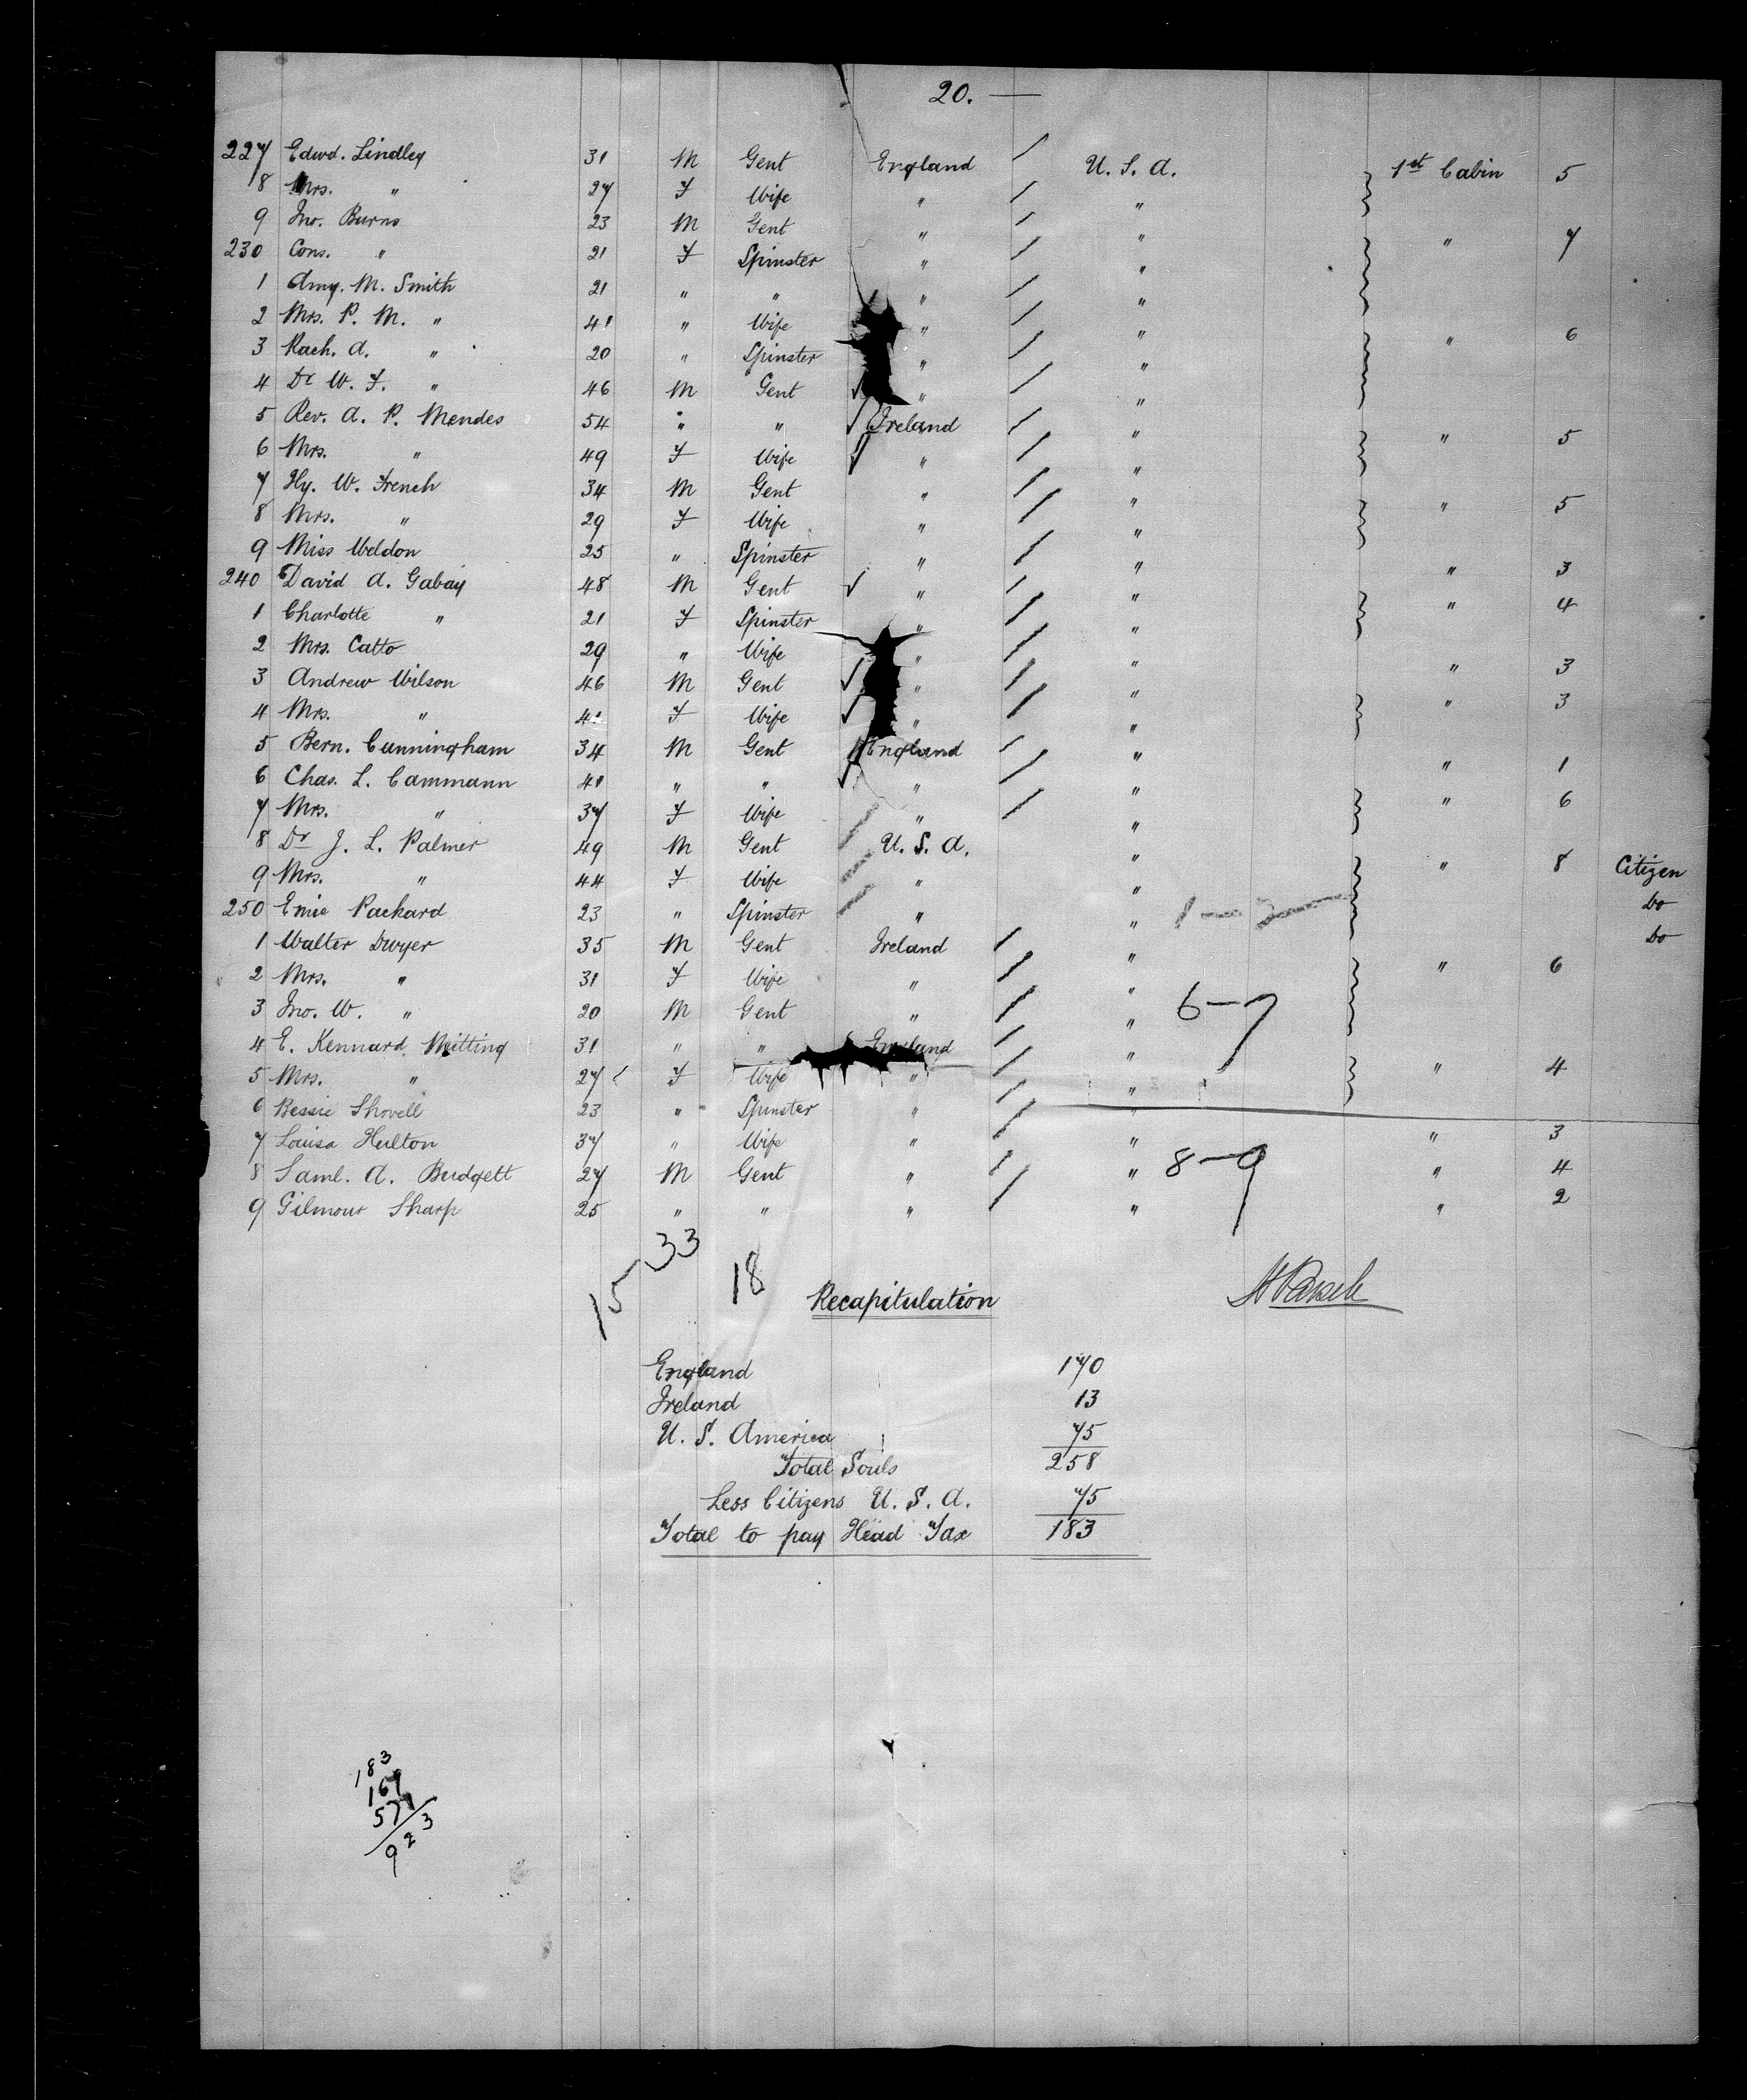 20. —
227 Edwd. Lindley 31 M Gent England / U. S. A. 1st Cabin 5
8 Mrs. " 27 F Wife " / "
9 Jno. Burns 23 M Gent " / " " 7
230 Cons. " 21 F Spinster " / "
1 Amy. M. Smith 21 " " " / "
2 Mrs. P. M. " 41 " Wife " / " " 6
3 Rach. A. " 20 " Spinster " / "
4 Dr W. F. " 46 M Gent " / "
5 Rev. A. P. Mendes 54 " " Ireland / " " 5
6 Mrs. " 49 F Wife " / "
7 Hy. W. French 34 M Gent " / " " 5
8 Mrs. " 29 F Wife " / "
9 Miss Weldon 25 " Spinster " / " " 3
240 David A. Gabay 48 M Gent " / " " 4
1 Charlotte " 21 F Spinster " / "
2 Mrs. Catto 29 " Wife " / " " 3
3 Andrew Wilson 46 M Gent " / " " 3
4 Mrs. " F Wife " / "
5 Bern. Cunningham 34 M Gent England / " " 1
6 Chas. L. Cammann 41 " " " / " " 6
7 Mrs. " 37 F Wife " / "
8 Dr J. L. Palmer 49 M Gent U. S. A. " " 8 Citizen
9 Mrs. " 44 F Wife " " Do
250 Emie Packard 23 " Spinster " " 1—3 Do
1 Walter Dwyer 35 M Gent Ireland / " " 6
2 Mrs. " 31 F Wife " / "
3 Jno. W. " 20 M Gent " / " 6—7
4 E. Kennard Mitting 31 " " England / " " 4
5 Mrs. " 27 F Wife " / "
6 Bessie Shovell 23 " Spinster " / " " 3
7 Louisa Hulton 37 " Wife " / " " 4
8 Saml. A. Budgett 27 M Gent " / " 8—9 " 2
9 Gilmour Sharp 25 " " " / " "
33
15 18
Recapitulation
England 170
Ireland 13
U. S. America 75
Total Souls 258
Less Citizens U. S. A. 75
Total to pay Head Tax 183
183
169
571
923